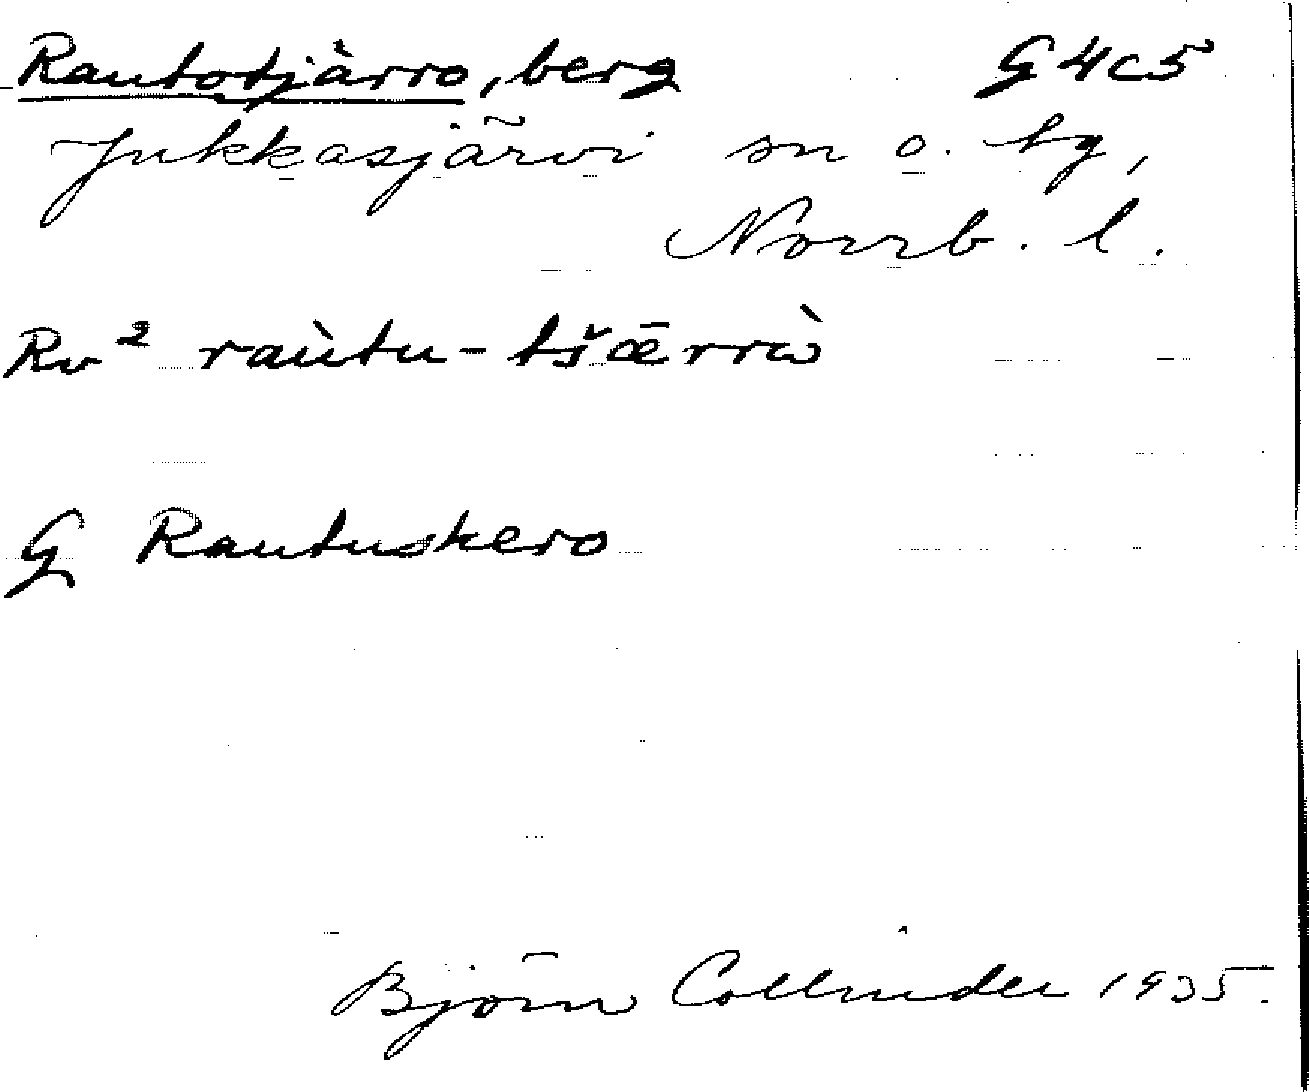 Rautotjàrro, berg G4c5
Jukkasjärvi sn o. tg,
Norrb. l.
Rv² raùtu-tšœ̄rrò
G Rautuskero
Björn Collinder 1935.